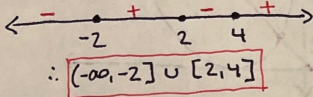 - + - +
-2 2 4
∴ (-∞,-2] ∪ [2,4]